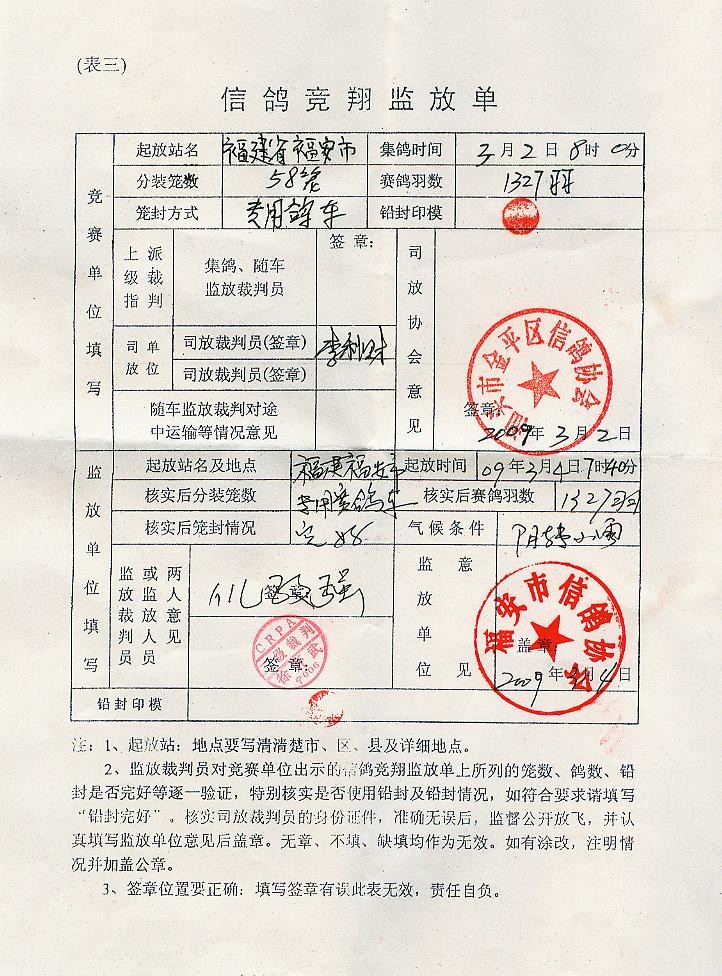 (表三)
信鸽竞翔监放单
竞赛单位填写
起放站名 福建省福安市 集鸽时间 3月2日8时0分
分装笼数 58笼 赛鸽羽数 1327羽
笼封方式 专用鸽车 铅封印模
上级指派裁判 集鸽、随车监放裁判员 签章:
司放单位 司放裁判员(签章) 李利财
司放裁判员(签章)
随车监放裁判对途中运输等情况意见
司放协会意见
汕头市金平区信鸽协会
签章:
2009年3月2日
监放单位填写
起放站名及地点 福建福安市 起放时间 09年3月4日7时40分
核实后分装笼数 专用赛鸽车 核实后赛鸽羽数 1327羽
核实后笼封情况 完好 气候条件 阴转小雨
监放裁判员或监放人员两人意见
签章:
CRPA
级裁判
签章:
监放单位意见
福安市信鸽协会
盖章:
2009年3月4日
铅封印模
注:1、起放站:地点要写清清楚市、区、县及详细地点。
2、监放裁判员对竞赛单位出示的信鸽竞翔监放单上所列的笼数、鸽数、铅
封是否完好等逐一验证,特别核实是否使用铅封及铅封情况,如符合要求请填写
“铅封完好”。核实司放裁判员的身份证件,准确无误后,监督公开放飞,并认
真填写监放单位意见后盖章。无章、不填、缺填均作为无效。如有涂改,注明情
况并加盖公章。
3、签章位置要正确:填写签章有误此表无效,责任自负。